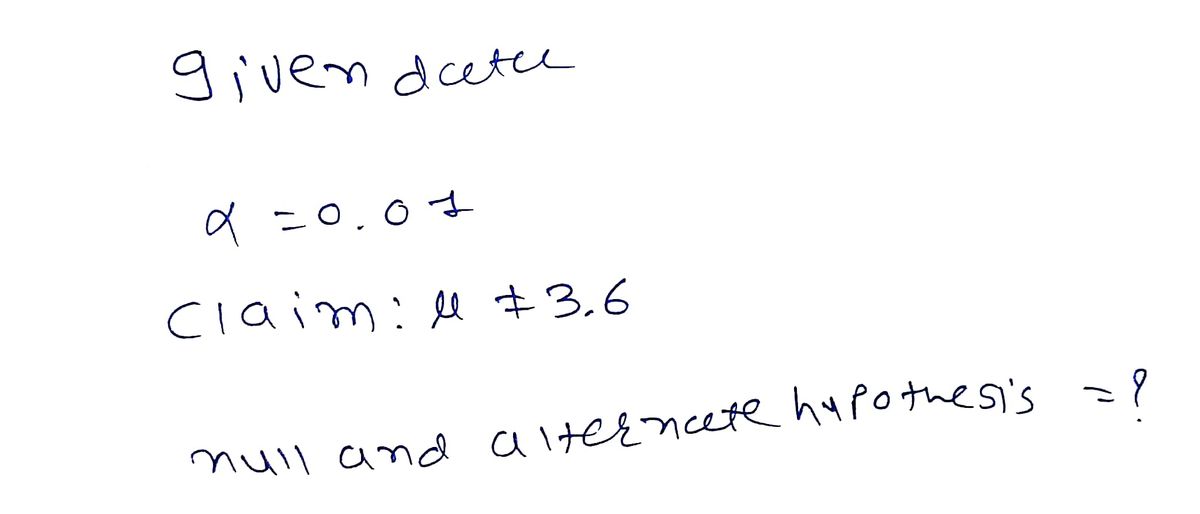 given data
α = 0.01
Claim: μ ≠ 3.6
null and alternate hypothesis = ?